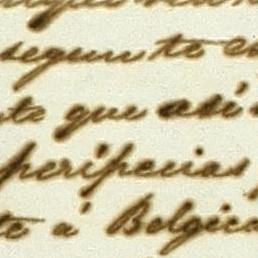 segun te e
te que así
peripecias
te á Belgica